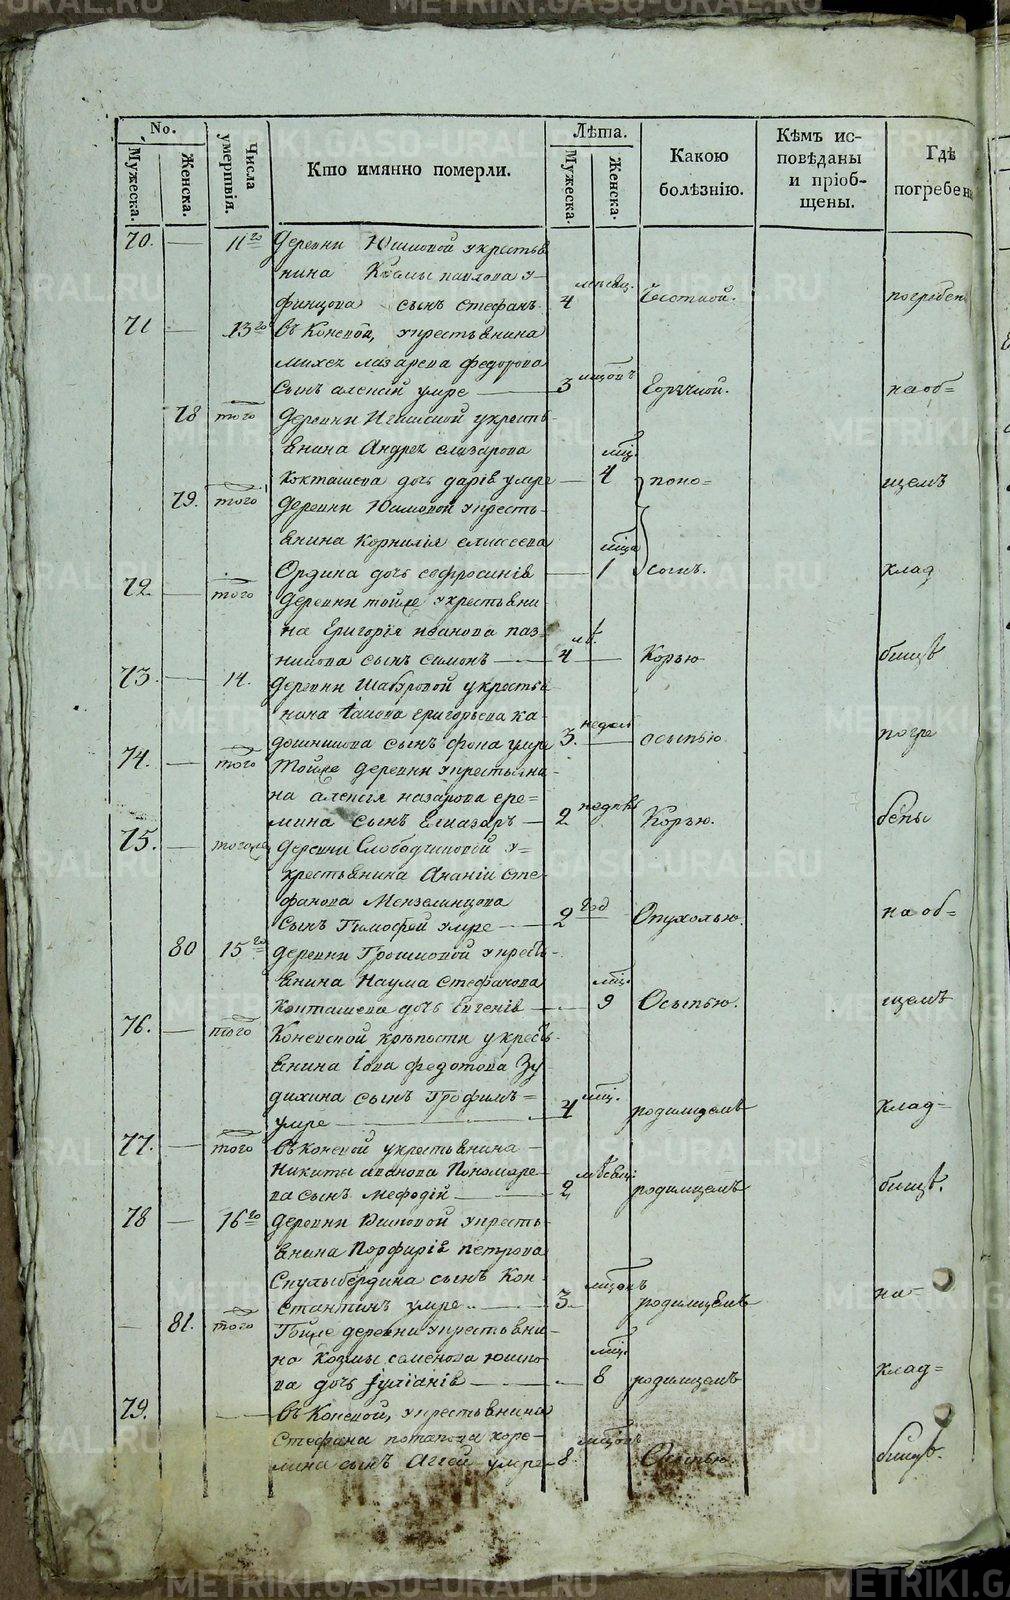 METRIKI.GASO-URAL.RU
No. Лѣта. Кѣмъ ис-
Мужеска. Женска. Числа умертвія. Кто имянно померли. Мужеска. Женска. Какою болѣзнію. повѣданы и пріоб-щены. Гдѣ погребен
70. — 11го Деревни Юшковой укрестья
нина Космы павлова у-
финцова сынъ стефанъ 4 Чесоткой. погребен
71 — 13го Въ Коневой, укрестьянина
михея лазарева федорова
Сынъ алексій умре — 3 мцовъ Горячкой. на об-
78 того Деревни укресть-
янина Андрея елизарова мц.
дочь дарія умре — 4 поно= щемъ
79. того деревни Юшковой укресть-
янина Корнилія елисеева мца
Ордина дочь евфросинія — 1 сомъ. клад
72. — того Деревни тойже укрестьяни
на Григорія иванова паз-
никова сынъ симонъ — 4 — Корью бищѣ
73. — 14. деревни Шабуровой укрестья
нина Іакова григорьева ка-
дошникова сынъ фома умре 3. недел осыпью погре
74. — того Тойже деревни укрестьяни
на алексія назарова ере=
мина сынъ Елиазаръ — 2 недѣль Корью. бены
75. — тогоже деревни Слободчиковой у-
крестьянина Ананіи сте-
фанова Мензелинцова
Сынъ Тимофей умре — 2 год Опухолью. на об=
80 15го деревни Грошковой укресть-
янина Наума Стефанова мц.
Конташева дочь Евгенія — 9 Осыпью. щемъ
76. — того Коневской крѣпости укресть-
янина Іова федотова Зу
дихина сынъ Трофимъ=
умре — 4 мц. родимцемъ клад-
77. — того въ коневой укрестьянина —
Никиты иванова Пономаре-
ва сынъ мефодій — 2 мѣсяц. родимцемъ бищѣ.
78 — 16го деревни Юшковой укресть-
янина Порфирія петрова
сынъ Кон-
стантинъ умре — 3. мцовъ родимцемъ на-
81. того Тойже деревни укрестьяни-
на Козмы семенова юшко-
ва дочь Іуліанія — 8 мц. родимцемъ клад=
79. — въ Коневой, укрестьянина
Стефана потапова коре-
лина сынъ Аггей умре — 8. мцовъ Осыпью бищѣ.